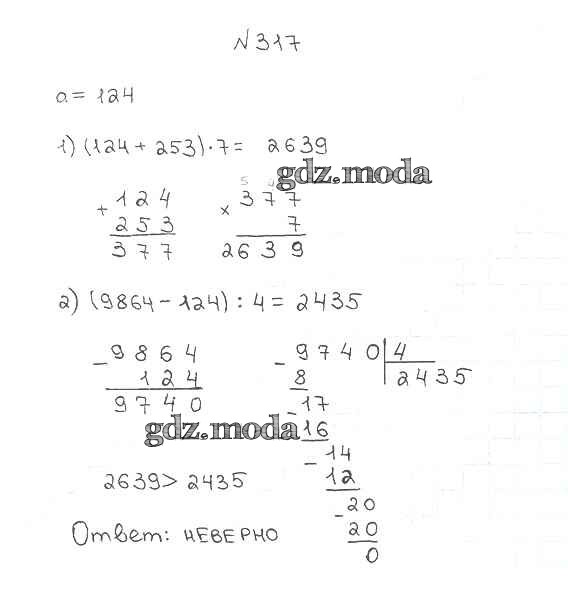 N 317
a = 124
1) (124 + 253) · 7 = 2639
gdz.moda
+ 124
253
377
5 4
× 377
7
2639
2) (9864 - 124) : 4 = 2435
- 9864
124
9740
- 9740 | 4
8 2435
- 17
16
- 14
12
- 20
20
0
gdz.moda
2639 > 2435
Ответ: НЕВЕРНО